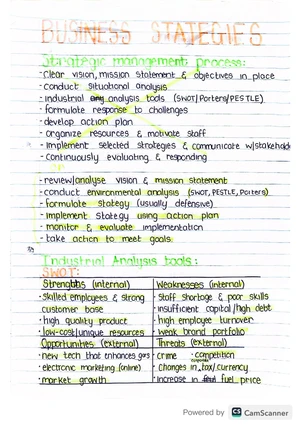 BUSINESS STATEGIES
Strategic management process:
- Clear vision, mission statement & objectives in place
- conduct situational analysis
- industrial analysis tools (SWOT/Porters/PESTLE)
- formulate response to challenges
- develop action plan
- organize resources & motivate staff
- implement selected strategies & communicate w/stakehold
- Continuously evaluating & responding
- review/analyse vision & mission statement
- conduct environmental analysis (SWOT, PESTLE, Porters)
- formulate stategy (usually defensive)
- implement stategy using action plan
- monitor & evaluate implementation
- take action to meet goals
Industrial Analysis tools:
SWOT:
Strengths (internal) Weaknesses (internal)
- skilled employees & strong - Staff shortage & poor skills
customer base - insufficient capital/high debt
- high quality product - high employee turnover
- low-cost/unique resources - weak brand portfolio
Opportunities (external) Threats (external)
- new tech that enhances g&s - crime - competition
- electronic marketing (online) - changes in corporate tax/currency
- market growth - increase in fuel price
Powered by CS CamScanner